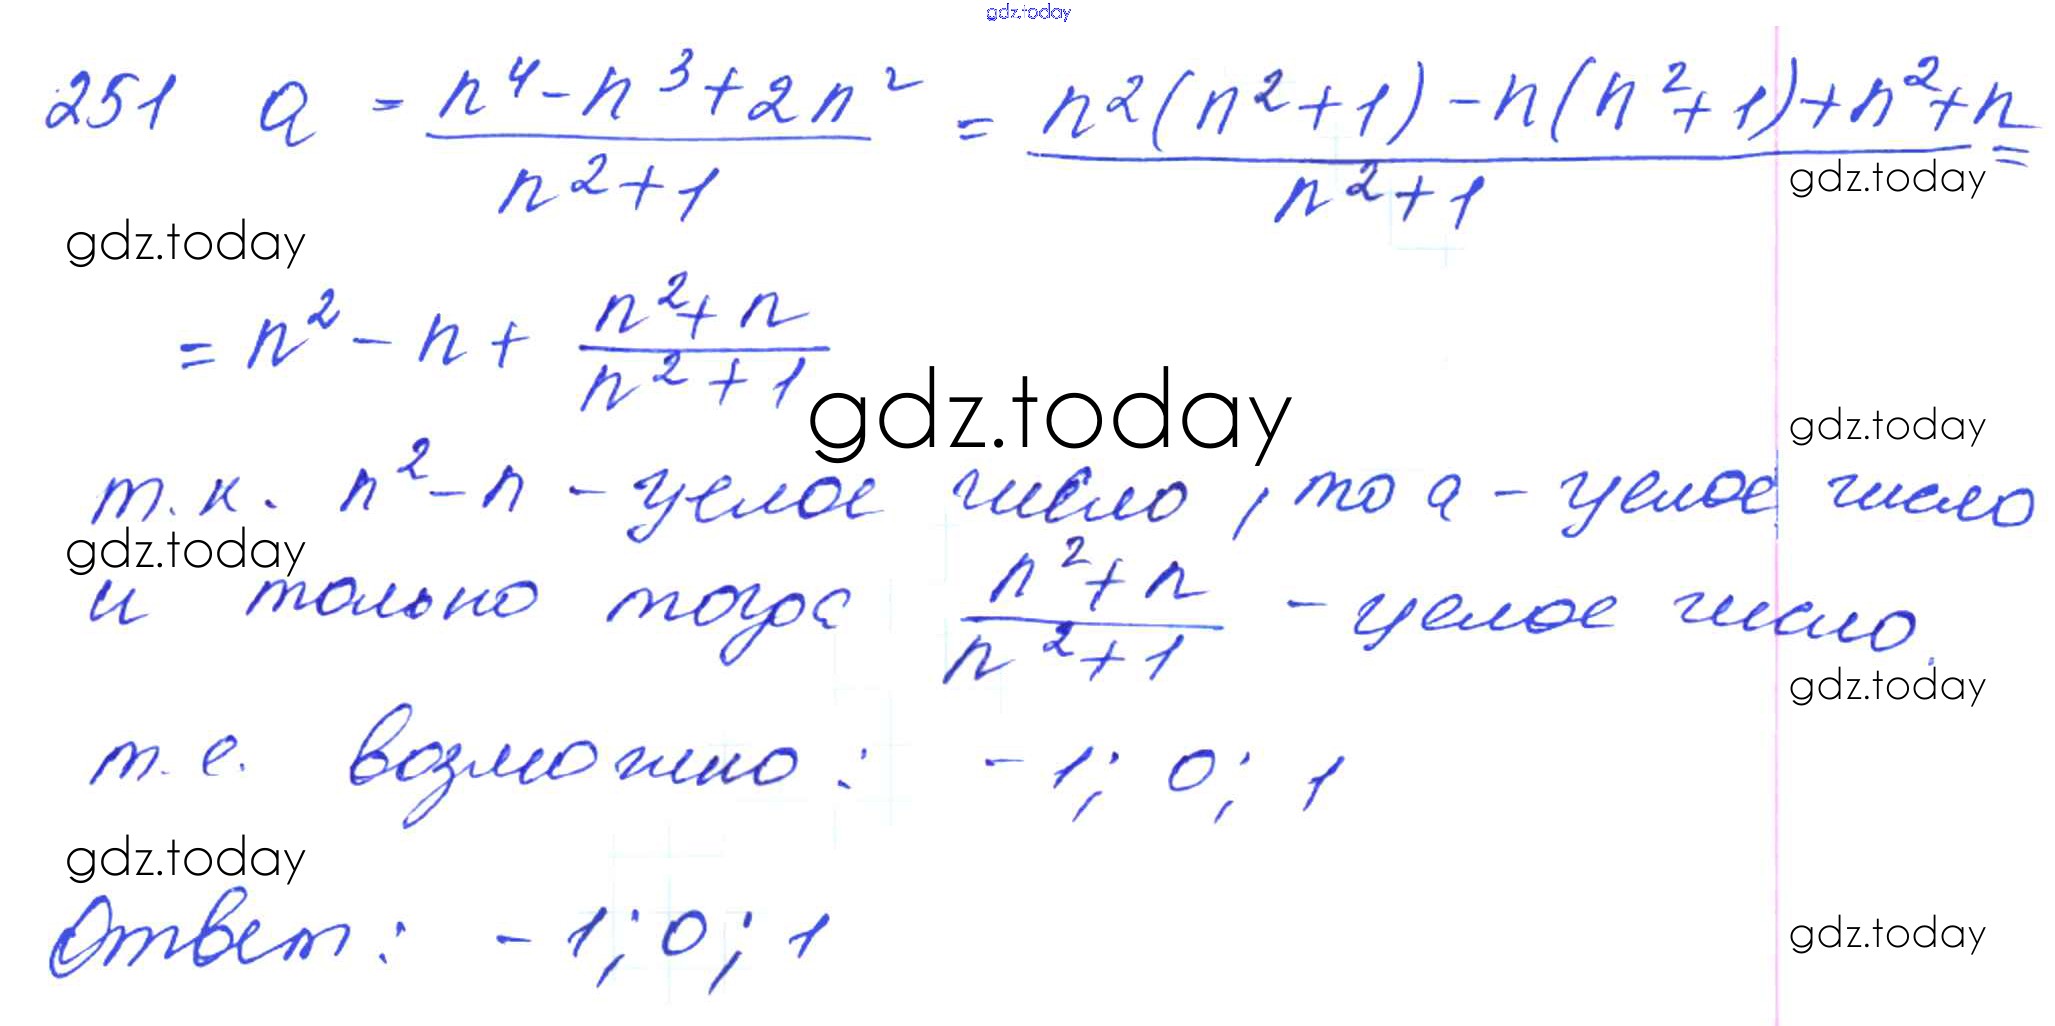 gdz.today
251 a = \frac{n^4 - n^3 + 2n^2}{n^2 + 1} = \frac{n^2(n^2 + 1) - n(n^2 + 1) + n^2 + n}{n^2 + 1} =
gdz.today
gdz.today
= n^2 - n + \frac{n^2 + n}{n^2 + 1}
gdz.today
gdz.today
т.к. n^2 - n - целое число, то a - целое число
gdz.today
и только тогда \frac{n^2 + n}{n^2 + 1} - целое число.
gdz.today
т.е. возможно: -1; 0; 1
gdz.today
Ответ: -1; 0; 1
gdz.today